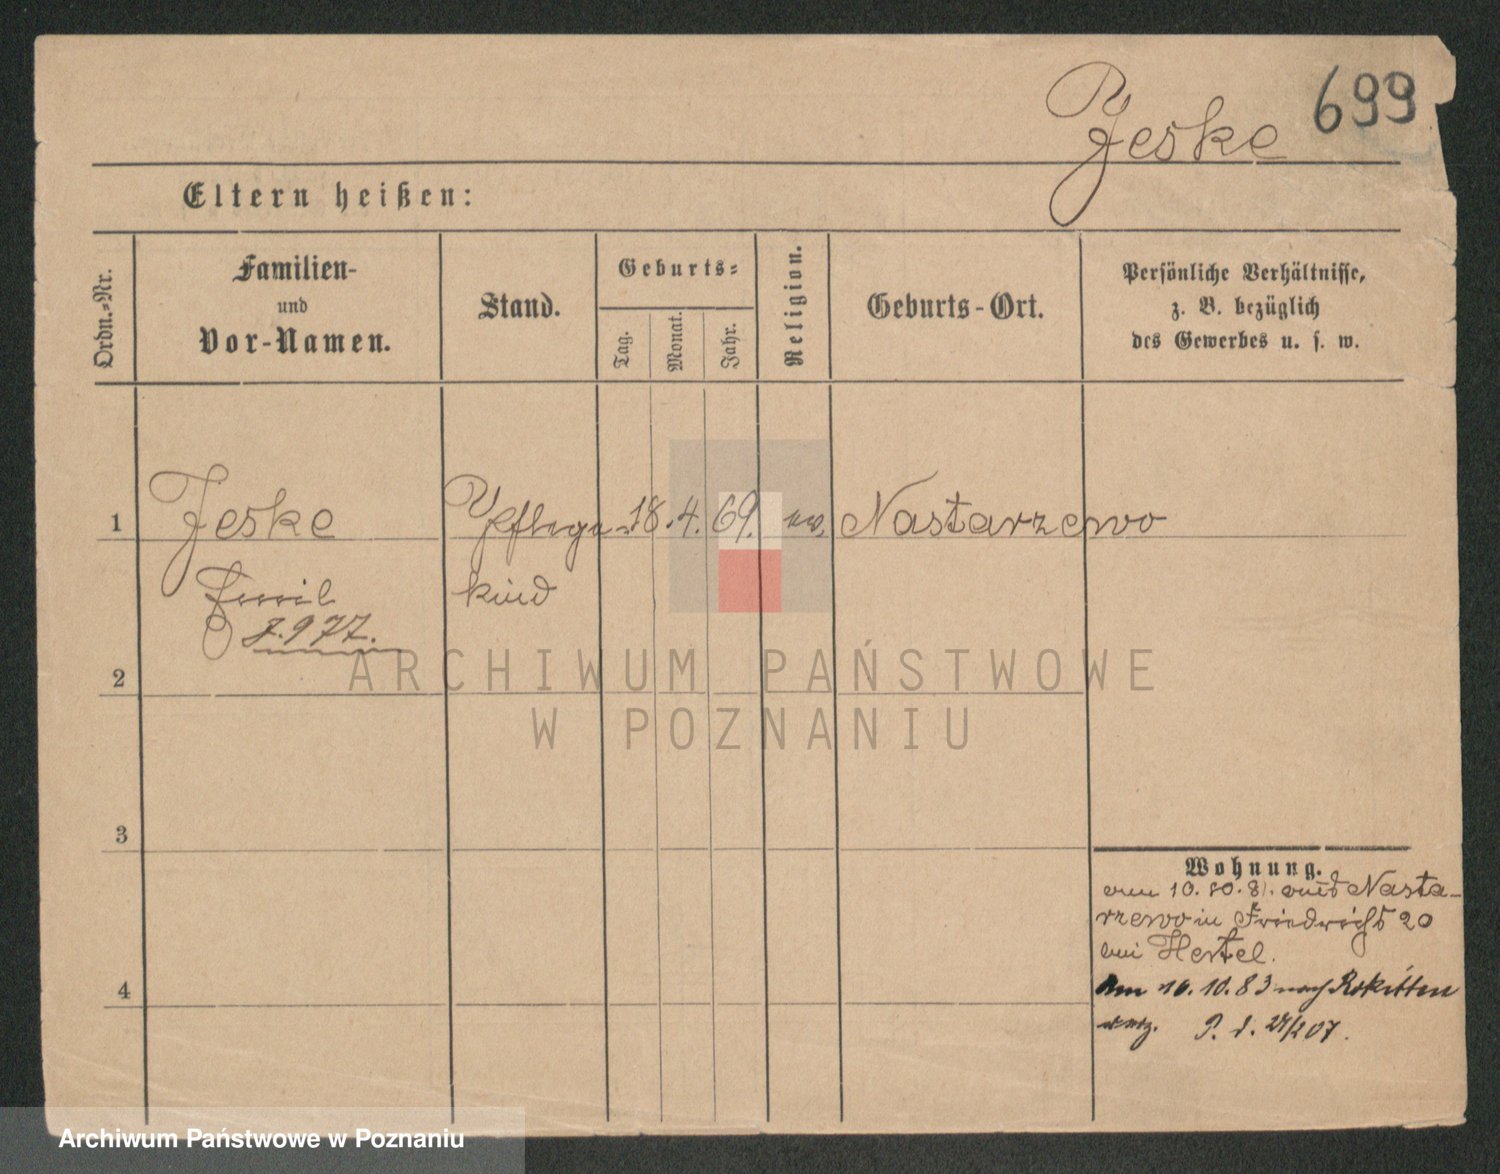 699
Jeske
Eltern heißen:
Ordn.-Nr.
Familien-
und
Vor-Namen.
Stand.
Geburts-
Tag.
Monat.
Jahr.
Religion.
Geburts-Ort.
Persönliche Verhältnisse,
z. B. bezüglich
des Gewerbes u. s. w.
1 Jeske Pflege- 18. 4. 69. ev. Nastarzewo
Emil kind
J. 977.
2
3
4
Wohnung.
am 10.10.81. aus Nasta-
rzewo in Friedrichst 20
bei Hertel.
Am 16.10.83 nach Rokitten
verz.
ARCHIWUM PAŃSTWOWE
W POZNANIU
Archiwum Państwowe w Poznaniu